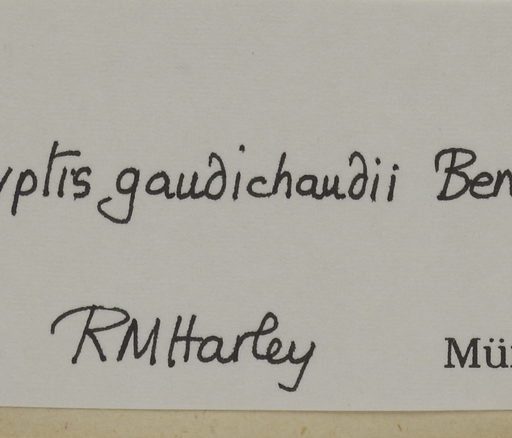 yptis gaudichaudii Ben
RMHarley Mün